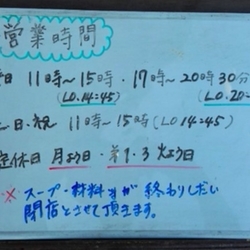 営業時間
日 11時〜15時・17時〜20時30分
(LO.14=45) (LO.20=
日・祝 11時〜15時(LO14=45)
定休日 月よう日・第1.3火よう日
※スープ・材料 が 終わりしだい
閉店とさせて頂きます。